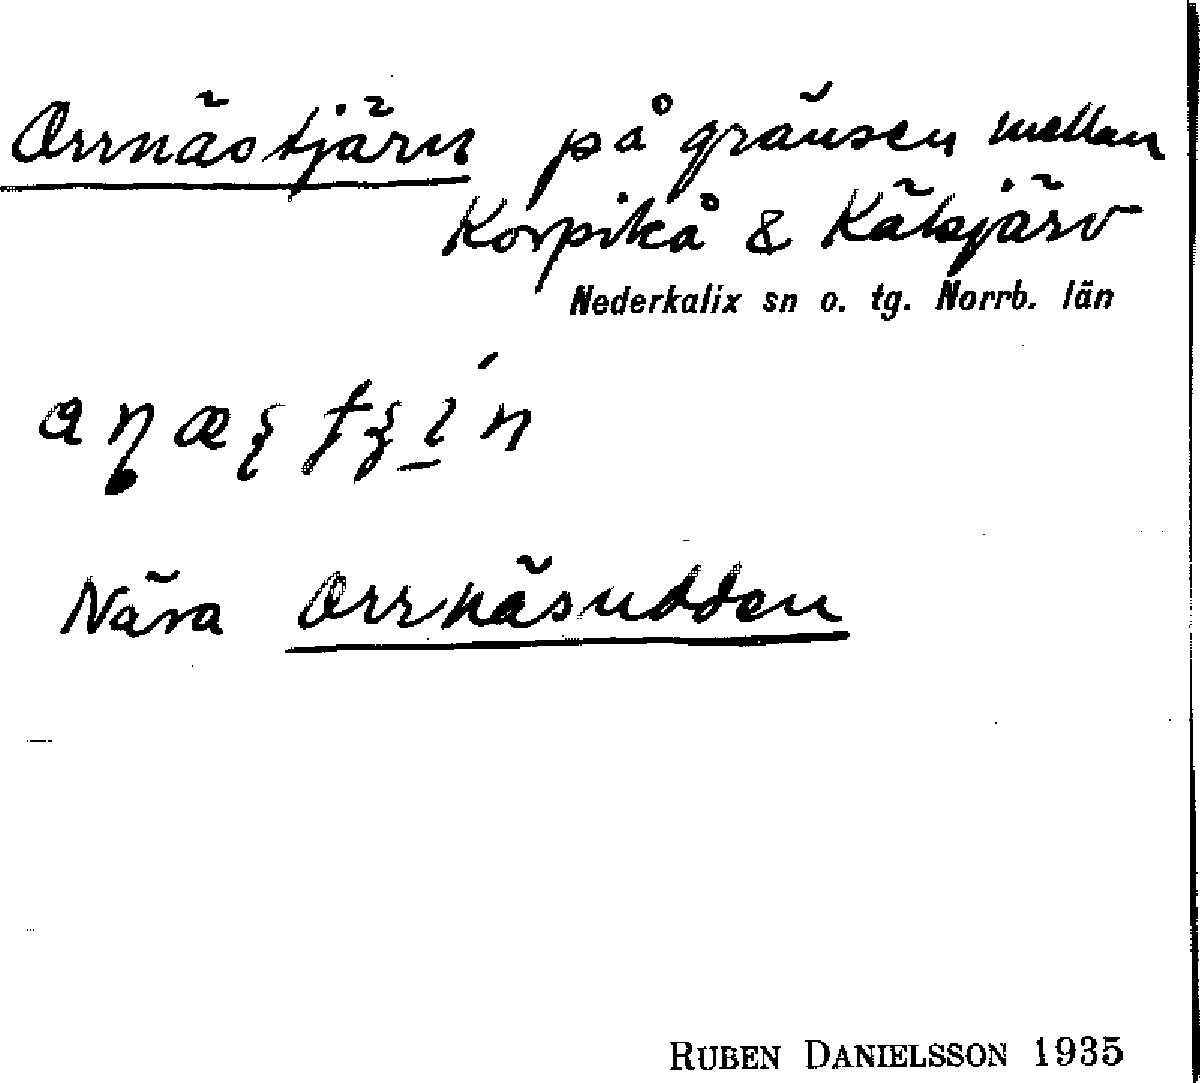 Orrnästjärn på gränsen mellan
Korpikå & Kälsjärv
Nederkalix sn o. tg. Norrb. län
Nära Orrnäsudden
RUBEN DANIELSSON 1935